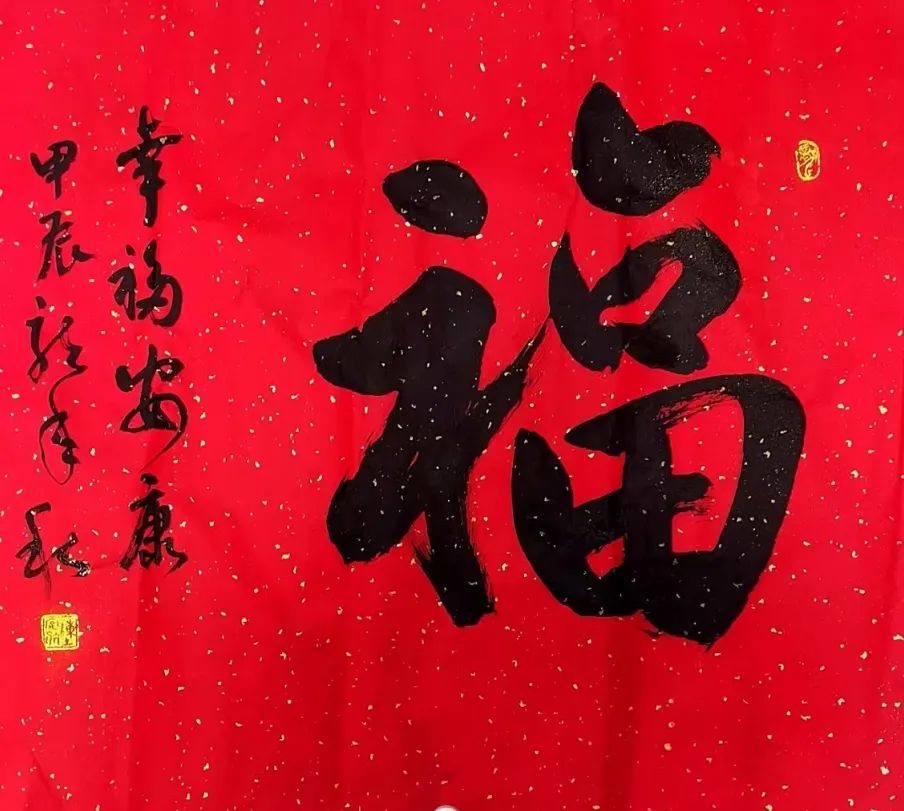 福
幸福安康
甲辰龙年秋